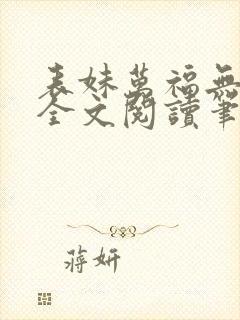 表妹萬福無
全文閱讀筆
蔣妍